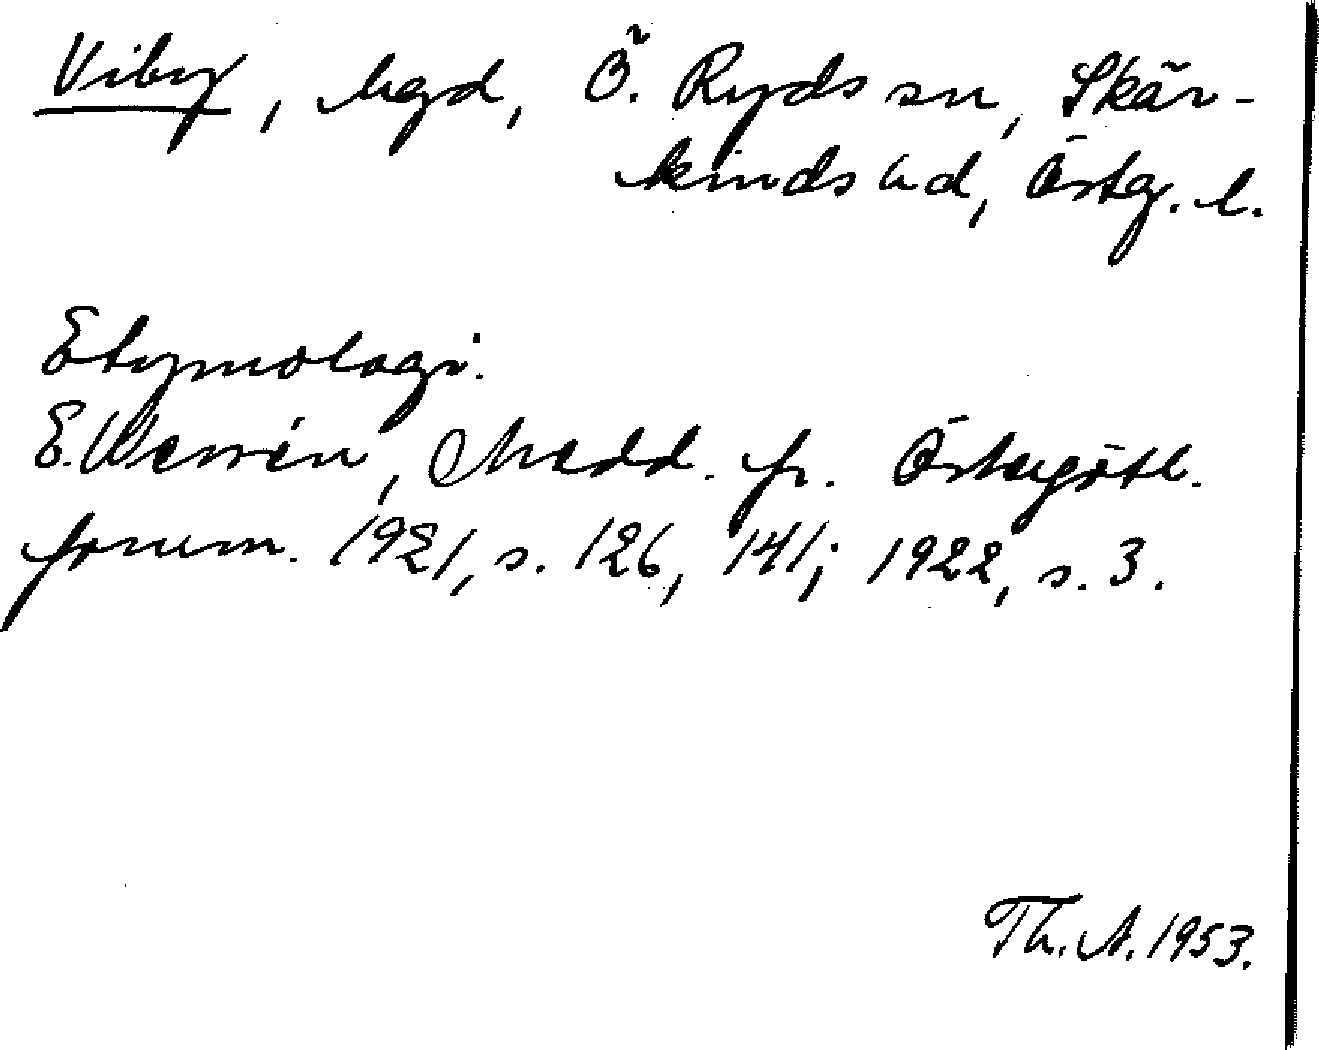 Viby, hgd, Ö. Ryds sn, Skär-
kinds hd, Östg. l.
Etymologi.
E. Wessén, Medd. fr. Östergötl.
fornm. 1921, s. 126, 141; 1922, s. 3.
Th. A. 1953.